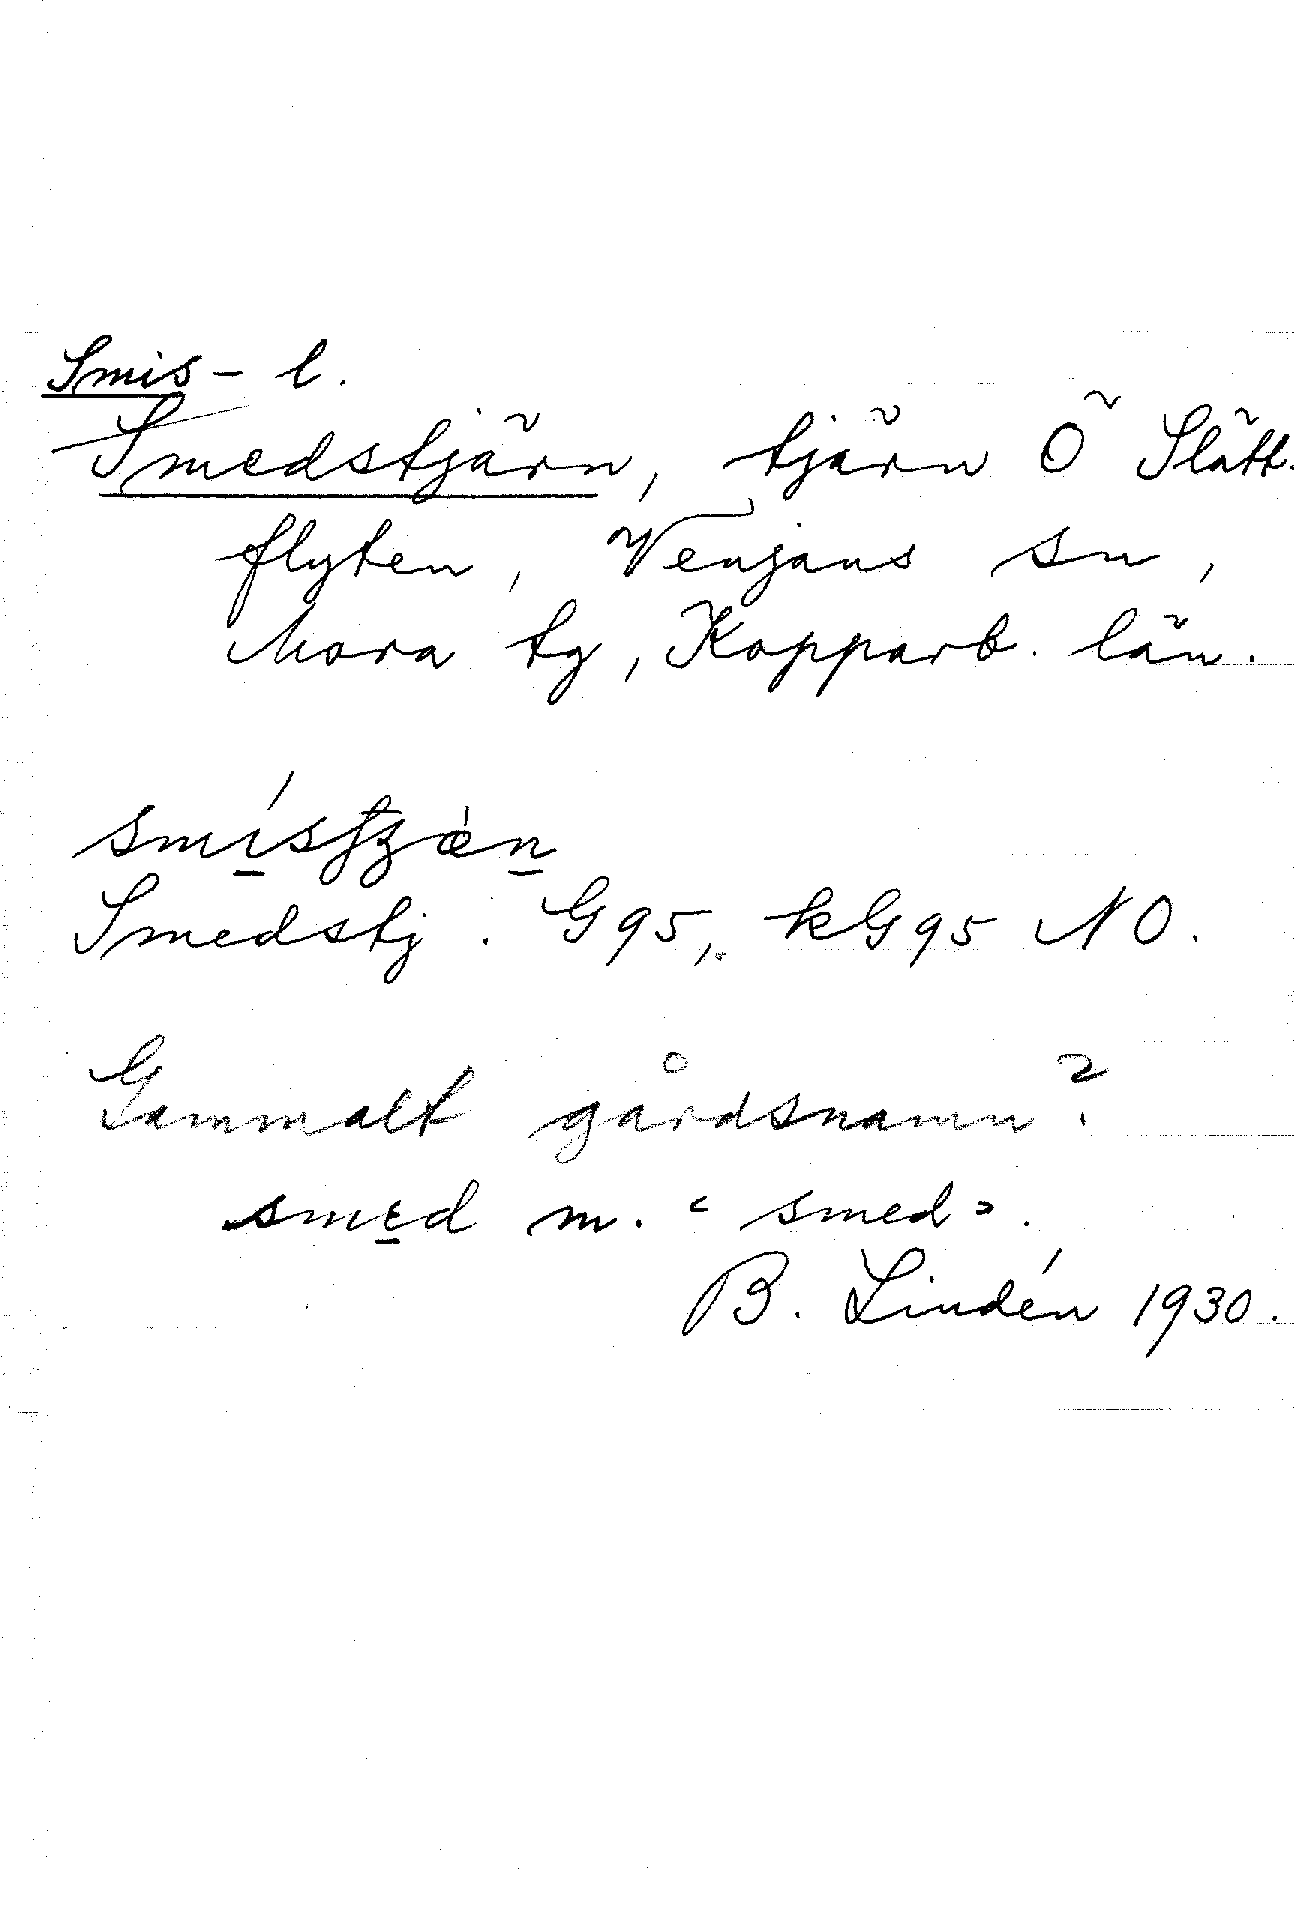 Smis- l.
Smedstjärn, tjärn Ö Slätt-
flyten, Venjans sn,
Mora tg, Kopparb. län.
Smedstj. G95, kG95 NO.
Gammalt gårdsnamn?
smed m. "smed".
B. Lindén 1930.